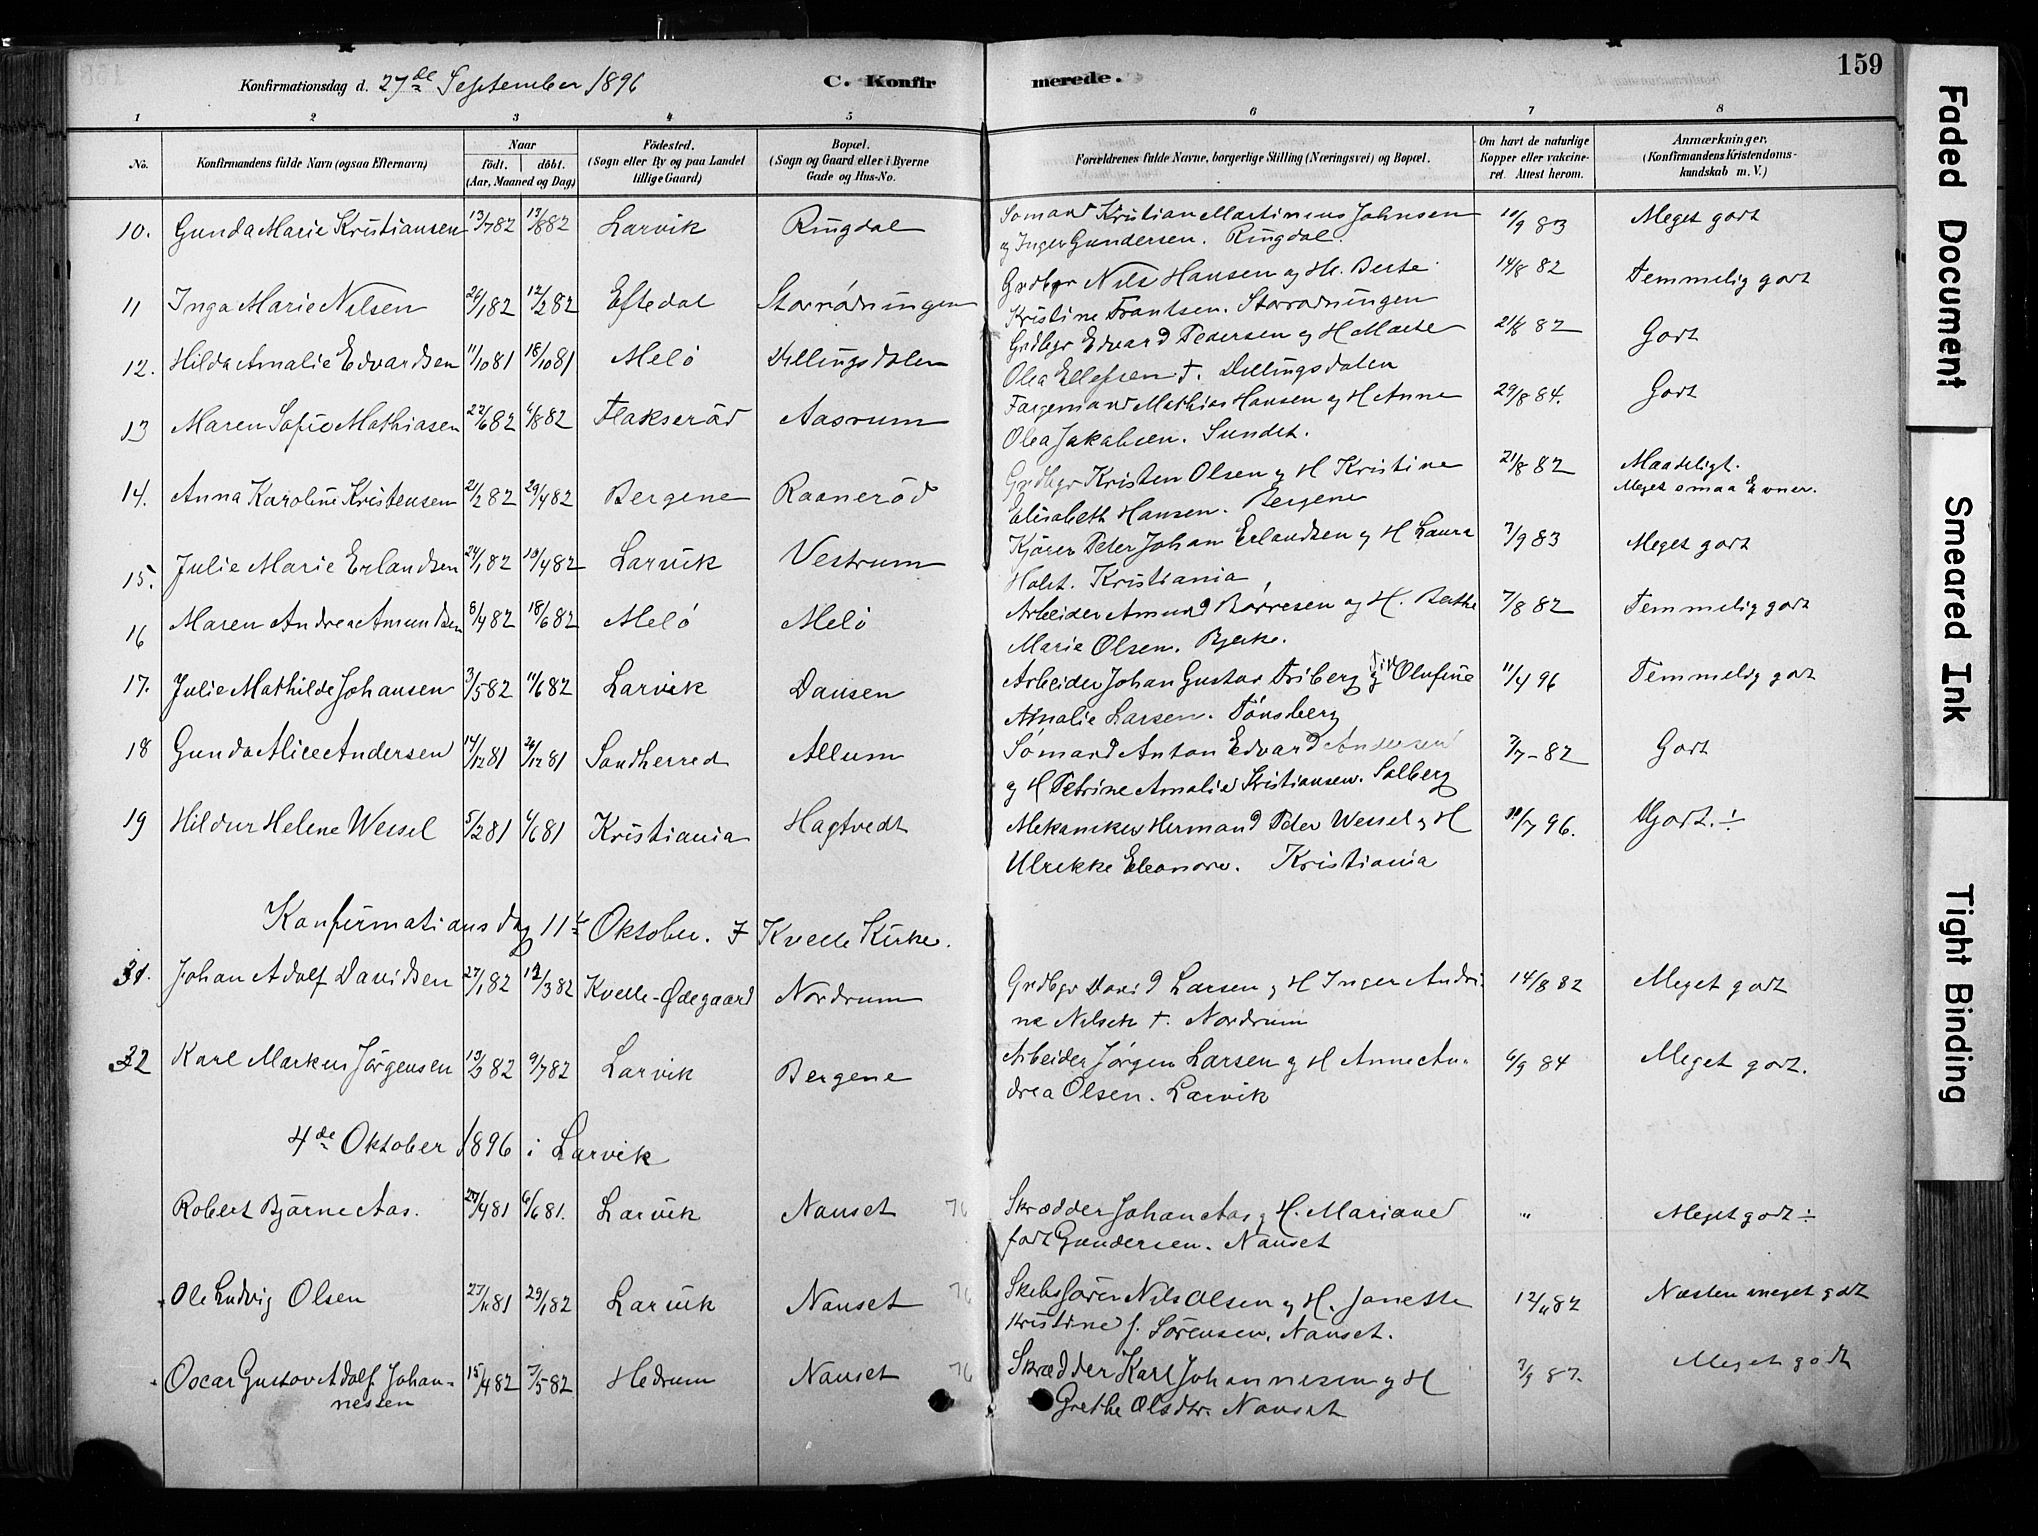 Konfirmationsdag d. 27de September 1896 C. Konfirmerede. 159
1 2 3 4 5 6 7 8
No. Konfirmandens fulde Navn (ogsaa Efternavn) Naar Födt. döbt. (Aar, Maaned og Dag) Födested. (Sogn eller By og paa Landet tillige Gaard) Bopæl. (Sogn og Gaard eller i Byerne Gade og Hus-No. Forældrenes fulde Navne, borgerlige Stilling (Næringsvei) og Bopæl. Om havt de naturlige Kopper eller vakcineret. Attest herom. Anmærkninger. (Konfirmandens Kristendomskundskab m. V.)
10. Gunda Marie Kristiansen 13/7 82 /8 82 Larvik Ringdal Sømand Kristian Martinius Johnsen 10/9 83 Meget godt
og Inger Gundersen. Ringdal.
11 Inga Marie Nilsen /1 82 12/2 82 Eftedal Storrødningen Grdbgr Nils Hansen og H. Berte 14/8 82 Temmelig godt
Kristine Frantsen. Storrødningen
12. Hilda Amalie Edvardsen 11/10 81 18/10 81 Melö Dillingsdalen Grdbgr Edvard Pedersen og H Marte 21/8 82 Godt
Olea Ellefsen †. Dillingsdalen
13 Maren Sofie Mathiasen 22/6 82 6/8 82 Flakseröd Aasrum Fargemand Mathias Hansen og H Anne 29/8 84. Godt
Olea Jakobsen. Sundet.
14. Anna Karoline Kristensen 21/2 82 29/4 82 Bergene Raaneröd Grdbgr Kristen Olsen og H Kristine 21/8 82 Maadeligt.
Elisabeth Hansen. Bergene Meget smaa Evner.
15. Julie Marie Erlandsen 24/1 82 10/4 82 Larvik Vestrum Kjörer Peter Johan Erlandsen og H Laura 7/9 83 Meget godt
Holst. Kristiania
16 Maren Andrea Amundsen 8/4 82 18/6 82 Melö Melö Arbeider Amund Börresen og H. Berthe 7/8 82 Temmelig godt
Marie Olsen. Bjerke.
17. Julie Mathilde Johansen 3/5 82 11/6 82 Larvik Dansen Arbeider Johan Gustav Friberg og Olufine 11/4 96 Temmelig godt
Amalie Larsen. Tönsberg
18 Gunda Alice Andersen 14/12 81 26/12 81 Sandherred Allum Sömand Anton Edvard Andersen 3/7 - 82 Godt
og H Petrine Amalie Kristiansen. Solberg
19 Hildur Helene Wessel 5/2 81 6/6 81 Kristiania Hagtvedt Mekaniker Herman Peter Wessel og H /7 96. Godt. ÷
Ulrikke Eleonore. Kristiania
Konfirmationsdag 11te Oktober. I Kvelle Kirke.
31. Johan Adolf Davidsen 27/1 82 12/3 82 Kvelle-Ødegaard Nordrum Grdbgr David Larsen og H Inger Andri- 14/8 82 Meget godt
ne Nilsen †. Nordrum
32 Karl Markus Jörgensen 19/3 82 9/7 82 Larvik Bergene Arbeider Jörgen Larsen og H Anne An- 6/9 84 Meget godt.
drea Olsen. Larvik
4de Oktober 1896 i Larvik
Robert Bjarne Aas. 27/4 81 6/6 81. Larvik Nanset 76 Skrædder Johan Aas og H. Mariane " Meget godt ÷
født Gundersen. Nanset
Ole Ludvig Olsen 27/11 81 29/1 82 Larvik Nanset 76 Skibsförer Nils Olsen og H. Janette 12/11 82 Næsten meget godt
Kristine f. Sörensen. Nanset.
Oscar Gustav Adolf Johan- 15/4 82 7/5 82 Hedrum Nanset 76 Skrædder Karl Johannesen og H 3/9 87. Meget godt
nessen Grethe Olsdtr. Nanset
Faded Document
Smeared Ink
Tight Binding